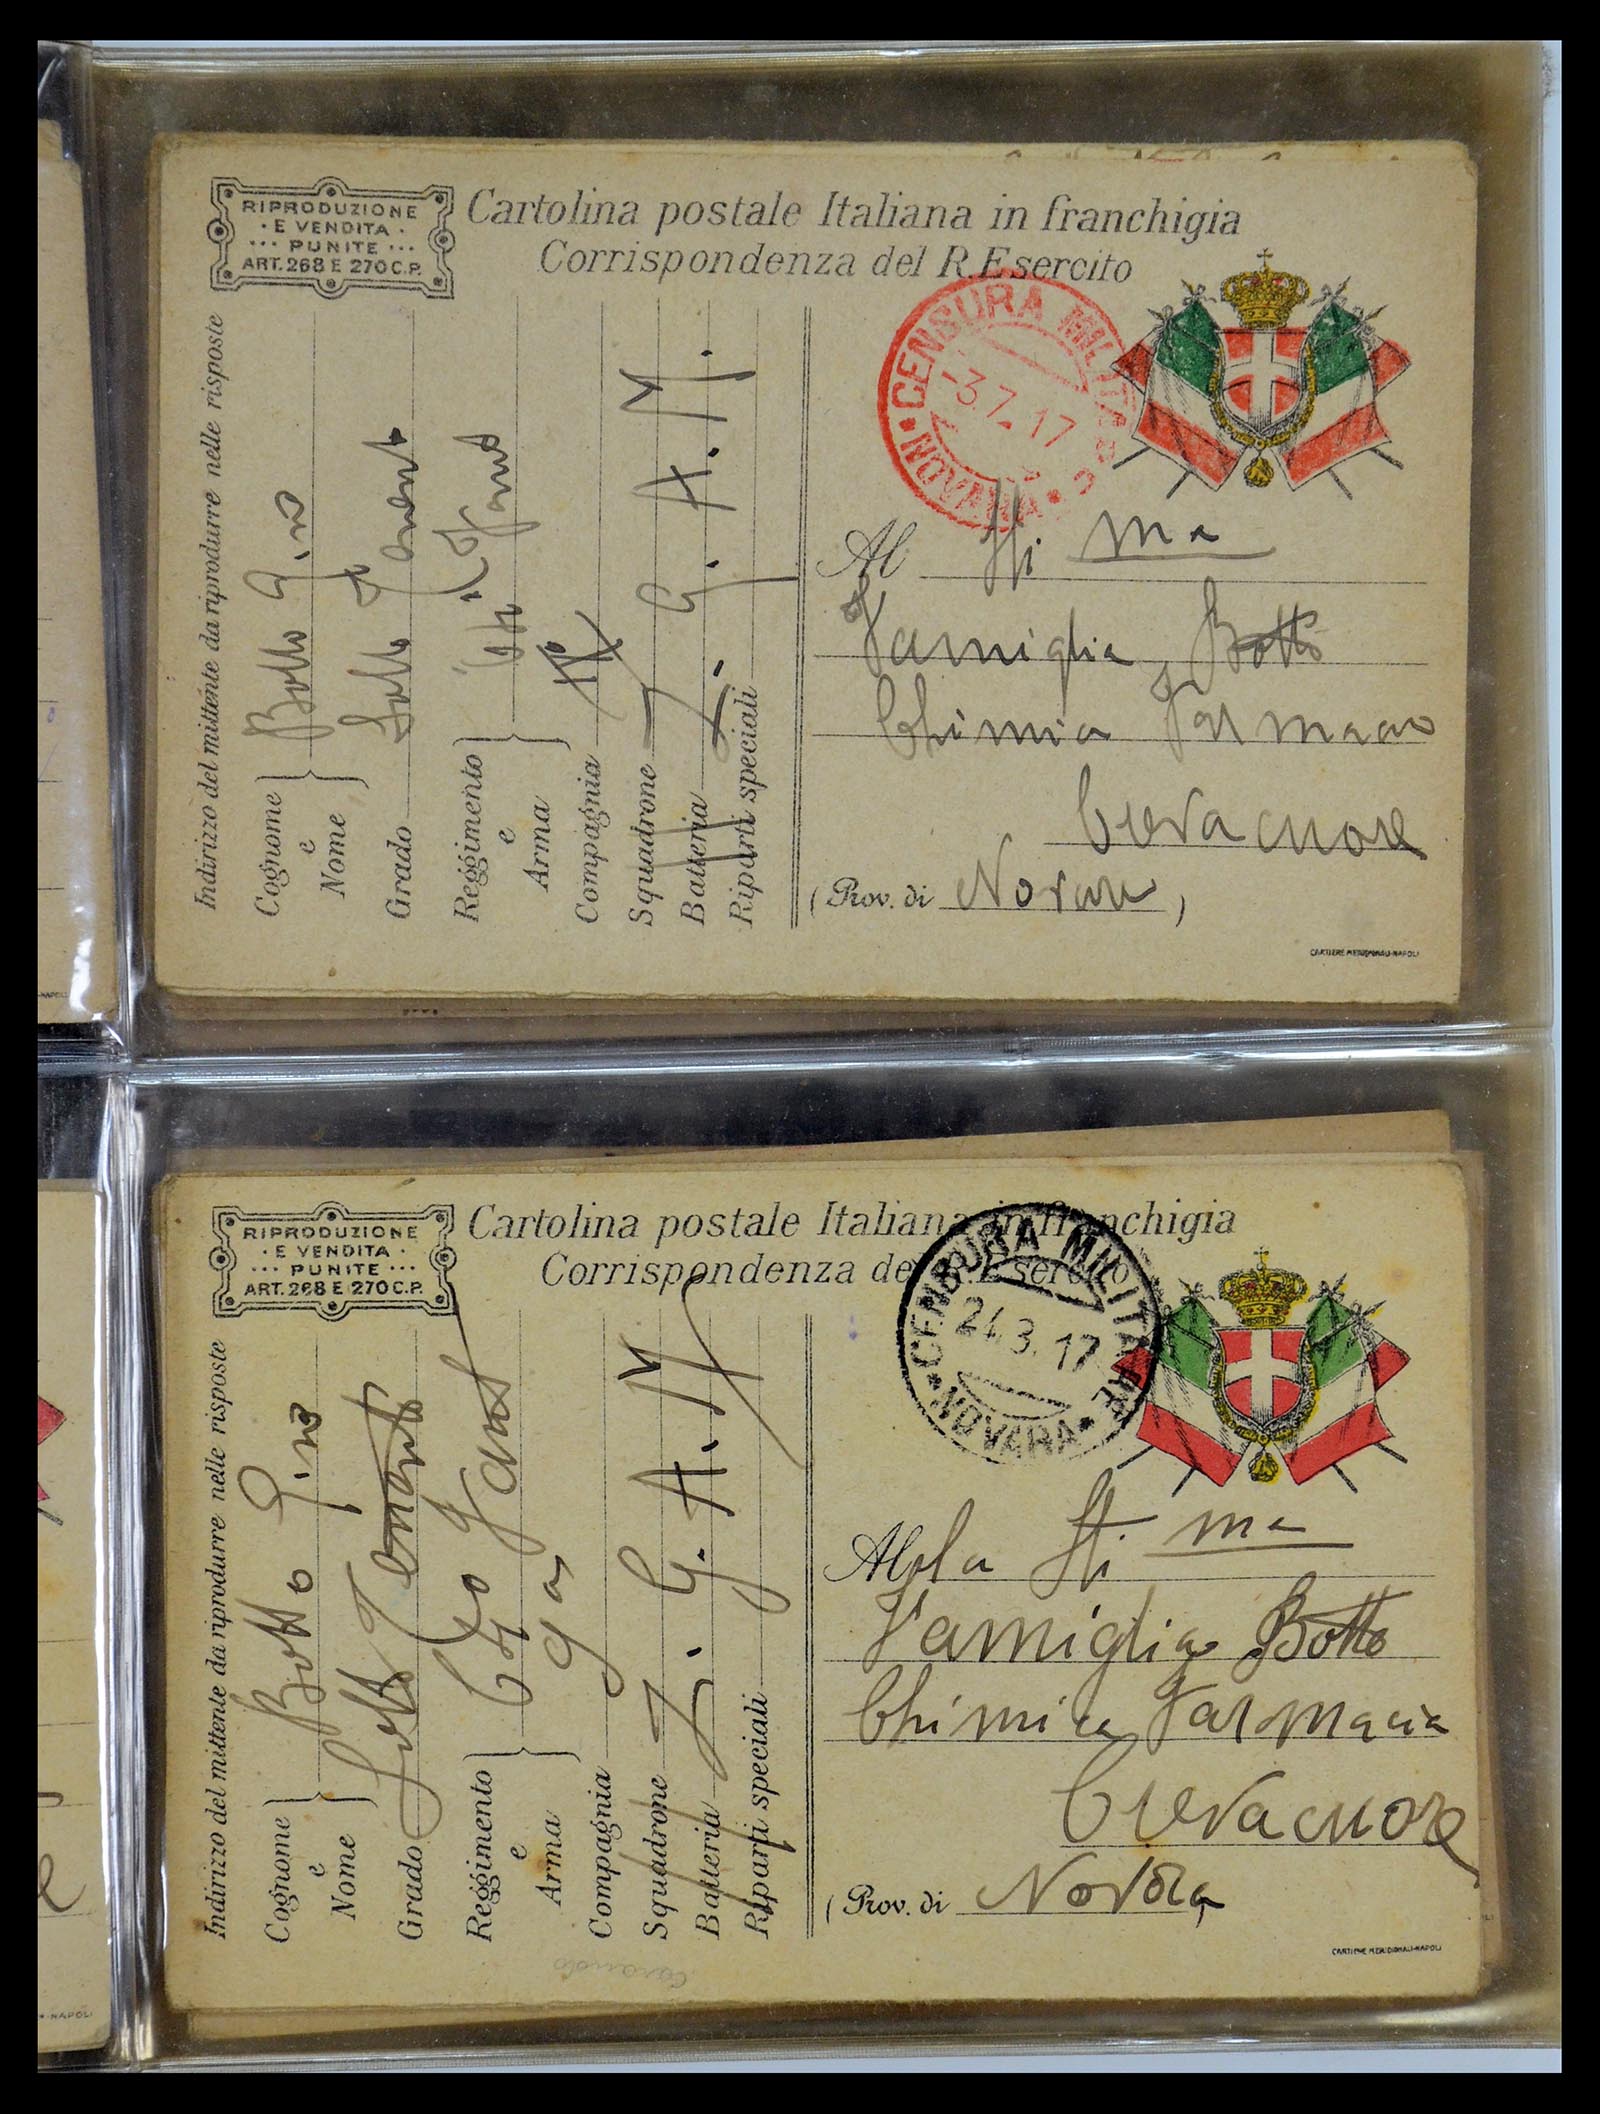 RIPRODUZIONE
· E VENDITA ·
··· PUNITE ···
ART. 268 E 270 C.P.
Cartolina postale Italiana in franchigia
Corrispondenza del R. Esercito
Indirizzo del mittente da riprodurre nelle risposte
Cognome e Nome } Botto Gino
Grado Sotto Tenente
Reggimento e Arma } Fant
Compagnia
Squadrone
Batteria
Riparti speciali
Z. G. A. M.
CENSURA MILITARE
-3.7.17
* NOVARA *
Al Sti ma
Famiglia Botto
Chimica Farmacia
Crevacuore
(Prov. di Novara)
CARTIERE MERIDIONALI-NAPOLI
RIPRODUZIONE
· E VENDITA ·
··· PUNITE ···
ART. 268 E 270 C.P.
Cartolina postale Italiana in franchigia
Corrispondenza del R. Esercito
Indirizzo del mittente da riprodurre nelle risposte
Cognome e Nome } Botto Gino
Grado Sotto Tenente
Reggimento e Arma } Fant
Compagnia 9a
Squadrone
Batteria
Riparti speciali
Z. G. A. M
CENSURA MILITARE
24.3.17
* NOVARA *
Alla Sti ma
Famiglia Botto
Chimica Farmacia
Crevacuore
(Prov. di Novara
CARTIERE MERIDIONALI-NAPOLI
-NAPOLI
-NAPOLI